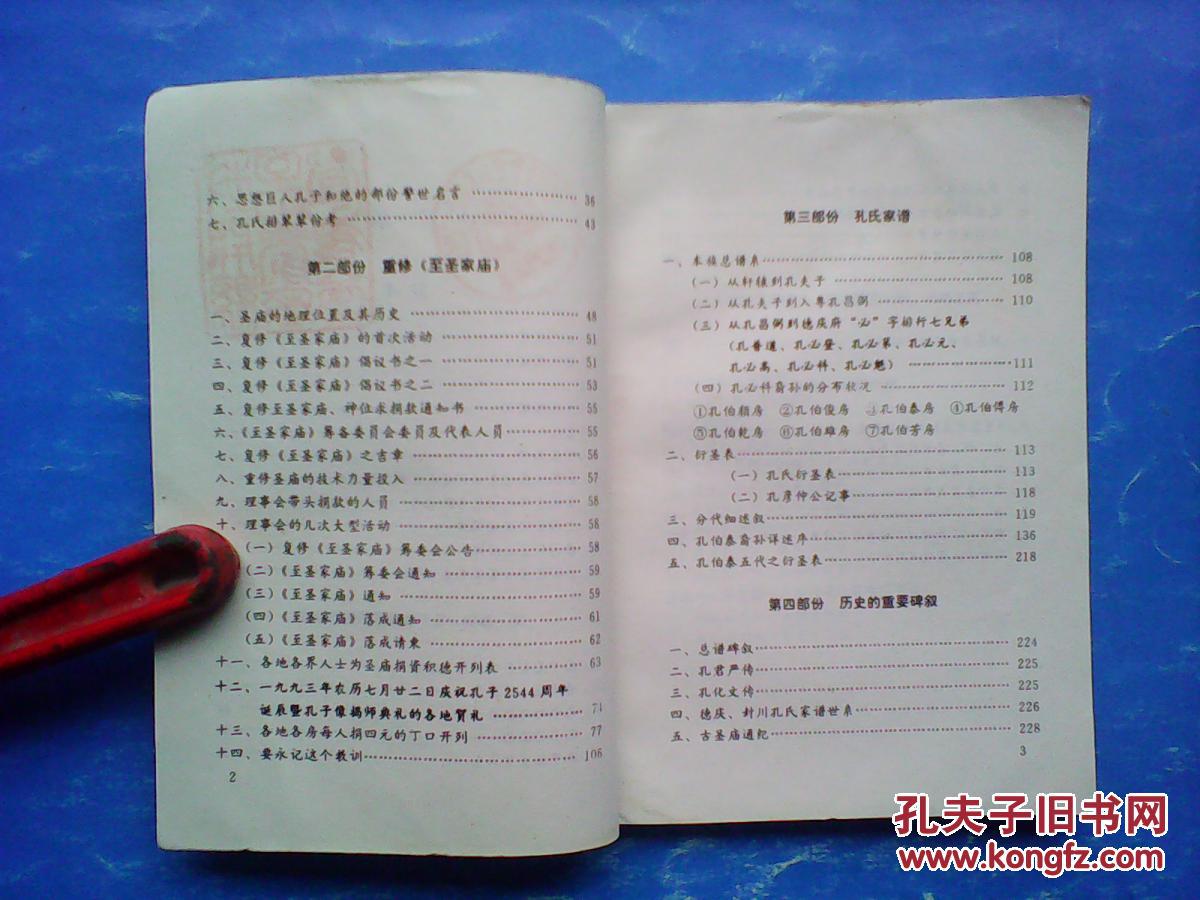 六、思想巨人孔子和他的部份警世名言 36
七、孔氏排辈辈份考 43
第二部份 重修《至圣家庙》
一、圣庙的地理位置及其历史 48
二、复修《至圣家庙》的首次活动 51
三、复修《至圣家庙》倡议书之一 51
四、复修《至圣家庙》倡议书之二 53
五、复修至圣家庙、神位求捐款通知书 55
六、《至圣家庙》筹备委员会委员及代表人员 55
七、复修《至圣家庙》之吉章 56
八、重修圣庙的技术力量投入 57
九、理事会带头捐款的人员 58
十、理事会的几次大型活动 58
(一)复修《至圣家庙》筹委会公告 58
(二)《至圣家庙》筹委会通知 59
(三)《至圣家庙》通知 59
(四)《至圣家庙》落成通知 61
(五)《至圣家庙》落成请柬 62
十一、各地各界人士为圣庙捐资积德开列表 63
十二、一九九三年农历七月廿二日庆祝孔子2544周年
诞辰暨孔子像揭师典礼的各地贺礼 71
十三、各地各房每人捐四元的丁口开列 77
十四、要永记这个教训 106
2
第三部份 孔氏家谱
一、本族总谱系 108
(一)从轩辕到孔夫子 108
(二)从孔夫子到入粤孔昌弼 110
(三)从孔昌弼到德庆府“必”字排行七兄弟
(孔普道、孔必登、孔必第、孔必元、
孔必高、孔必科、孔必魁) 111
(四)孔必科裔孙的分布状况 112
①孔伯颜房 ②孔伯俊房 ③孔伯泰房 ④孔伯傅房
⑤孔伯乾房 ⑥孔伯雄房 ⑦孔伯芳房
二、衍圣表 113
(一)孔氏衍圣表 113
(二)孔彦仲公记事 118
三、分代细述叙 119
四、孔伯泰裔孙详述序 136
五、孔伯泰五代之衍圣表 218
第四部份 历史的重要碑叙
一、总谱碑叙 224
二、孔君严传 225
三、孔化文传 225
四、德庆、封川孔氏家谱世系 226
五、古圣庙通纪 228
3
孔夫子旧书网
www.kongfz.com